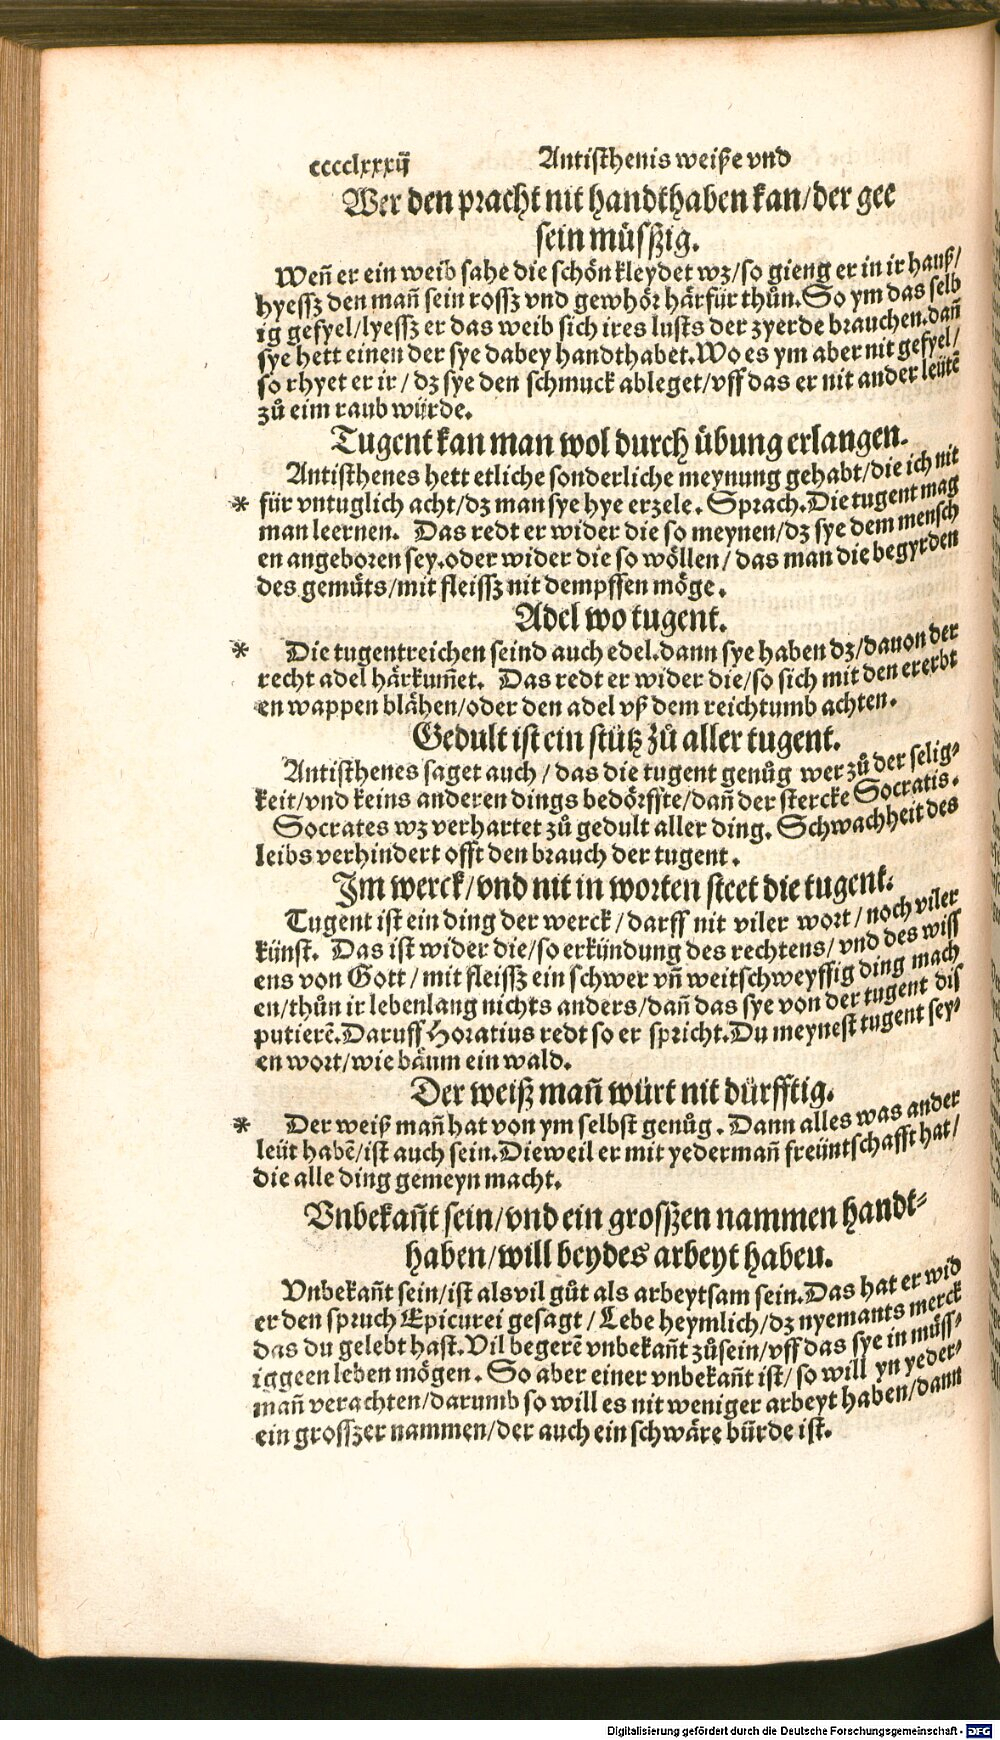 cccclxxxij Antisthenis weiße vnd
Wer den pracht nit handthaben kan/der gee
sein müſſzig.
Weñ er ein weib sahe die schön kleydet wz/so gieng er in ir hauß/
hyessz den mañ sein rossz vnd gewhör härfür thůn.So ym das selb
ig gefyel/lyessz er das weib sich ires lusts der zyerde brauchen.dañ
sye hett einen der sye dabey handthabet.Wo es ym aber nit gefyel/
so rhyet er ir/dz sye den schmuck ableget/vff das er nit ander leütẽ
zů eim raub würde.
Tugent kan man wol durch übung erlangen.
Antisthenes hett etliche sonderliche meynung gehabt/die ich nit
* für vntuglich acht/dz man sye hye erzele. Sprach.Die tugent mag
man leernen. Das redt er wider die so meynen/dz sye dem mensch
en angeboren sey.oder wider die so wöllen/das man die begyrden
des gemüts/mit fleissz nit dempffen möge.
Adel wo tugent.
* Die tugentreichen seind auch edel.dann sye haben dz/dauon der
recht adel härkum̃et. Das redt er wider die/so sich mit den ererbt
en wappen blähen/oder den adel vß dem reichtumb achten.
Gedult ist ein stütz zů aller tugent.
Antisthenes saget auch/das die tugent genůg wer zů der selig⸗
keit/vnd keins anderen dings bedörffte/dañ der stercke Socratis.
Socrates wz verhartet zů gedult aller ding. Schwachheit des
leibs verhindert offt den brauch der tugent.
Im werck/vnd nit in worten steet die tugent.
Tugent ist ein ding der werck/darff nit viler wort/noch viler
künst. Das ist wider die/so erkündung des rechtens/vnd des wiss
ens von Gott/mit fleissz ein schwer vñ weitschweyffig ding mach
en/thůn ir lebenlang nichts anders/dañ das sye von der tugent dis
putierẽ.Daruff Horatius redt so er spricht.Du meynest tugent sey⸗
en wort/wie bäum ein wald.
Der weiß mañ würt nit dürfftig.
* Der weiß mañ hat von ym selbst genůg. Dann alles was ander
leüt habẽ/ist auch sein.Dieweil er mit yedermañ freüntschafft hat/
die alle ding gemeyn macht.
Vnbekañt sein/vnd ein grosszen nammen handt⸗
haben/will beydes arbeyt haben.
Vnbekañt sein/ist alsvil gůt als arbeytsam sein.Das hat er wid
er den spruch Epicurei gesagt/Lebe heymlich/dz nyemants merck
das du gelebt hast.Vil begerẽ vnbekañt zůsein/vff das sye in müss⸗
iggeen leben mögen. So aber einer vnbekañt ist/so will yn yeder⸗
mañ verachten/darumb so will es nit weniger arbeyt haben/dann
ein grosszer nammen/der auch ein schwäre bürde ist.
Digitalisierung gefördert durch die Deutsche Forschungsgemeinschaft - DFG